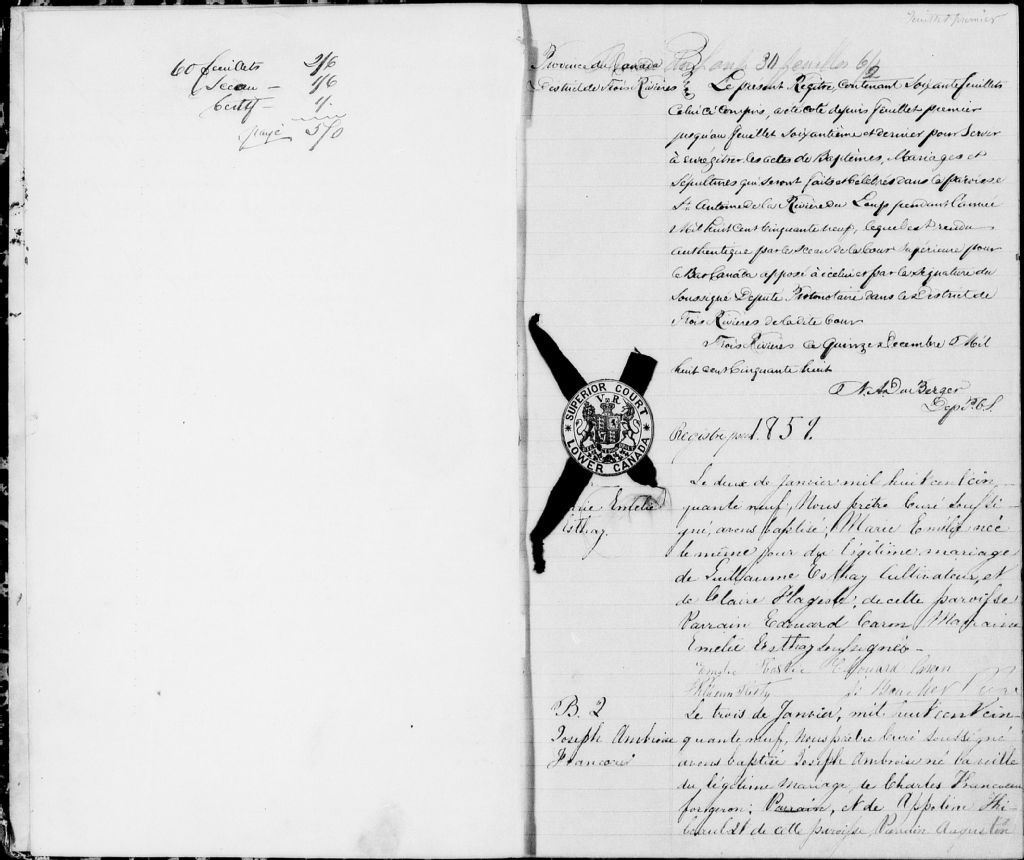 60 feuillets 2/6
Sceau 1/6
Certif 1/.
payé 5/0
feuillet premier
Province du Canada
District de Trois Rivières
Loup 30 feuilles
Le présent Régitre, contenant Soixante feuillets
Celui ci compris, a été coté depuis feuillet premier
jusqu'au feuillet Soixantième et dernier pour servir
à enrégistrer les actes de Baptêmes, Mariages et
Sépultures qui seront faits et célébrés dans la paroisse
St. Antoine de la Rivière du Loup pendant l'année
Mil huit cent cinquante neuf, lequel est rendu
authentique par le Sceau de la Cour Supérieure pour
le Bas Canada apposé à icelui et par la signature du
Soussigné Député Protonotaire dans le District de
Trois Rivières de la dite Cour
Trois Rivières ce Quinze Décembre Mil
huit cent cinquante huit
Berger
Dep. P.C.S.
SUPERIOR COURT
V R
LOWER CANADA
Régistre pour 1859.
Emelie
Esthay.
Le deux de Janvier mil huit cent cin-
quante neuf, Nous prêtre Curé soussi-
gné, avons baptisé, Marie Emélie née
le même jour du légitime mariage
de Guillaume Esthay Cultivateur, et
de Claire Flageole, de cette paroisse
Parrain Edouard Caron Marraine
Emélie Esthay soussignés
Emelie Edouard Caron
Boucher Ptre
B. 2
Joseph Ambroise
Francoeur
Le trois de Janvier, mil huit cent cin-
quante neuf, Nous prêtre Curé soussigné
avons baptisé Joseph Ambroise né la veille
du légitime mariage, de Charles Francoeur
forgeron, Parrain, et de Appoline Thi-
beault de cette paroisse, Parrain Augustin